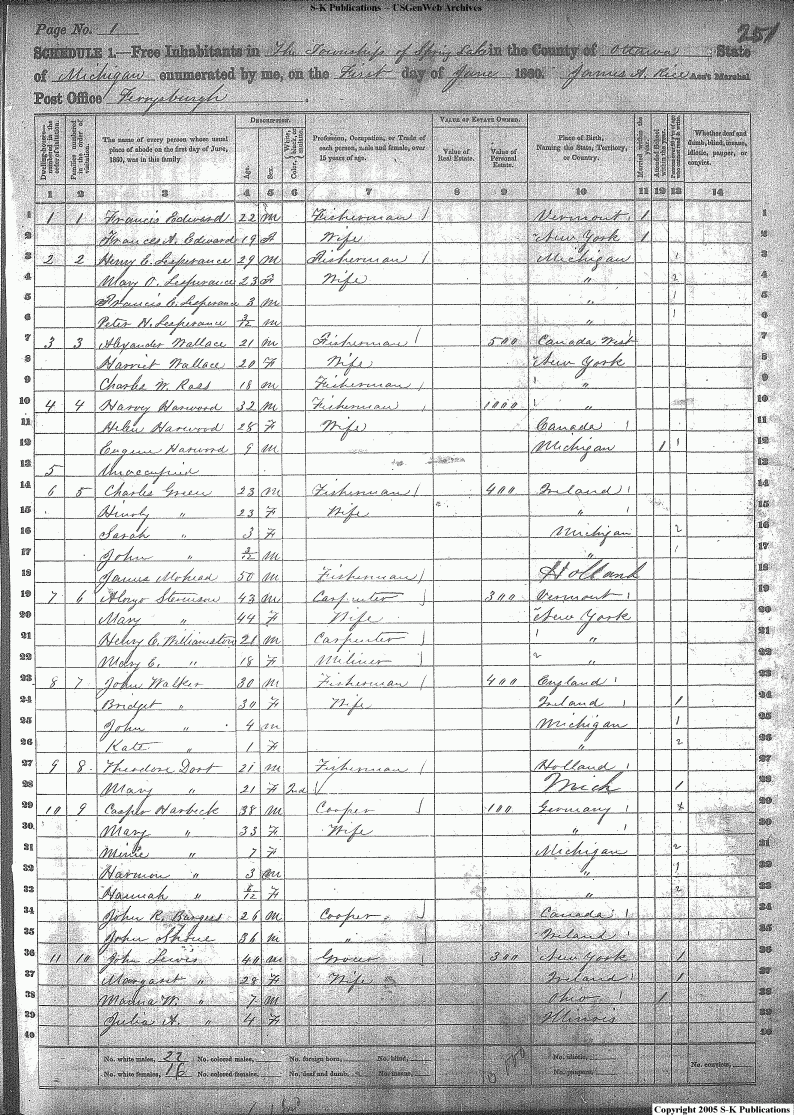 S-K Publications – USGenWeb Archives
Page No. 1
251
SCHEDULE 1.—Free Inhabitants in The Township of Spring Lake in the County of Ottawa State
of Michigan enumerated by me, on the First day of June 1860. James A. Rice Ass't Marshal
Post Office Ferrysburgh
DESCRIPTION.
VALUE OF ESTATE OWNED.
The name of every person whose usual place of abode on the first day of June, 1860, was in this family
Age.
Sex.
Profession, Occupation, or Trade of each person, male and female, over 15 years of age.
Value of Real Estate.
Value of Personal Estate.
Place of Birth, Naming the State, Territory, or Country.
Married within the year.
Attended School within the year.
Whether deaf and dumb, blind, insane, idiotic, pauper, or convict.
1 2 3 4 5 6 7 8 9 10 11 12 13 14
1 1 1 Francis Edward 22 M Fisherman / Vermont 1 1
2 Frances A. Edward 19 F Wife New York 1
3 2 2 Henry E. Lesperance 29 M Fisherman / Michigan 1 3
4 Mary O. Lesperance 23 F Wife " 2 4
5 Francis E. Lesperance 3 M " 1 5
6 Peter N. Lesperance 3/12 M " 1 6
7 3 3 Alexander Wallace 21 M Fisherman / 500 Canada West 7
8 Harriet Wallace 20 F Wife New York 8
9 Charles W. Ross 18 M Fisherman / " 9
10 4 4 Harvy Harwood 32 M Fisherman / 1000 " 10
11 Helen Harwood 28 F Wife Canada 1 11
12 Eugene Harwood 9 M Michigan 1 1 12
13 5 Unoccupied 13
14 6 5 Charles Green 23 M Fisherman / 400 Ireland 1 14
15 " 23 F Wife " 1 15
16 Sarah " 3 F Michigan 2 16
17 John " M " 1 17
18 James 50 M Fisherman / Holland 18
19 7 6 Alonzo 43 M Carpenter 300 Vermont 1 19
20 Mary " 44 F Wife New York 20
21 Henry C. Williamston 21 M Carpenter " 21
22 Mary E. " 18 F Miliner " 22
23 8 7 John Walker 30 M Fisherman 400 England 1 23
24 Bridget " 30 F Wife Ireland 1 1 24
25 John " 4 M Michigan 1 25
26 Kate " 1 F " 2 26
27 9 8 Theodore Dort 21 M Fisherman / Holland 1 27
28 Mary " 21 F Mich 1 28
29 10 9 Casper Harbeck 38 M Cooper 100 Germany 1 29
30 Mary " 33 F Wife " 1 30
31 Minie " 7 F Michigan 2 31
32 Harmon " 3 M " 1 32
33 Hannah " F " 2 33
34 John R. Burgess 26 M Cooper Canada 1 34
35 John 36 M " Ireland 1 35
36 11 10 John Lewis 40 M Grocer 300 New York 1 36
37 Margaret " 28 F Wife Ireland 1 1 37
38 W. " 7 M Ohio 1 38
39 Julia A. " 4 F Illinois 39
40 40
No. white males, 22 No. colored males, No. foreign born, No. blind, No. idiotic,
No. white females, 16 No. colored females, No. deaf and dumb, No. insane, No. paupers, No. convicts,
Copyright 2005 S-K Publications